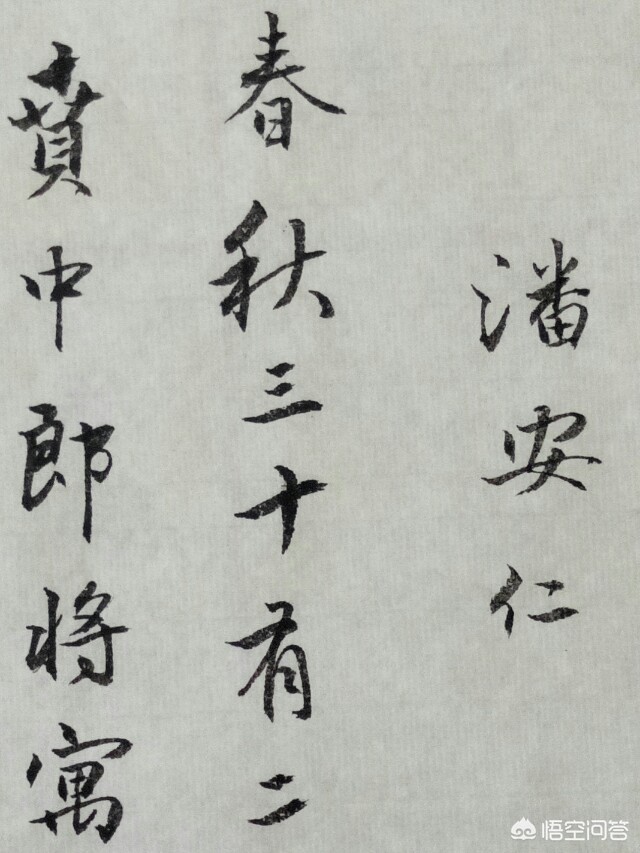 潘安仁
春秋三十有二
賁中郎将寓
悟空问答